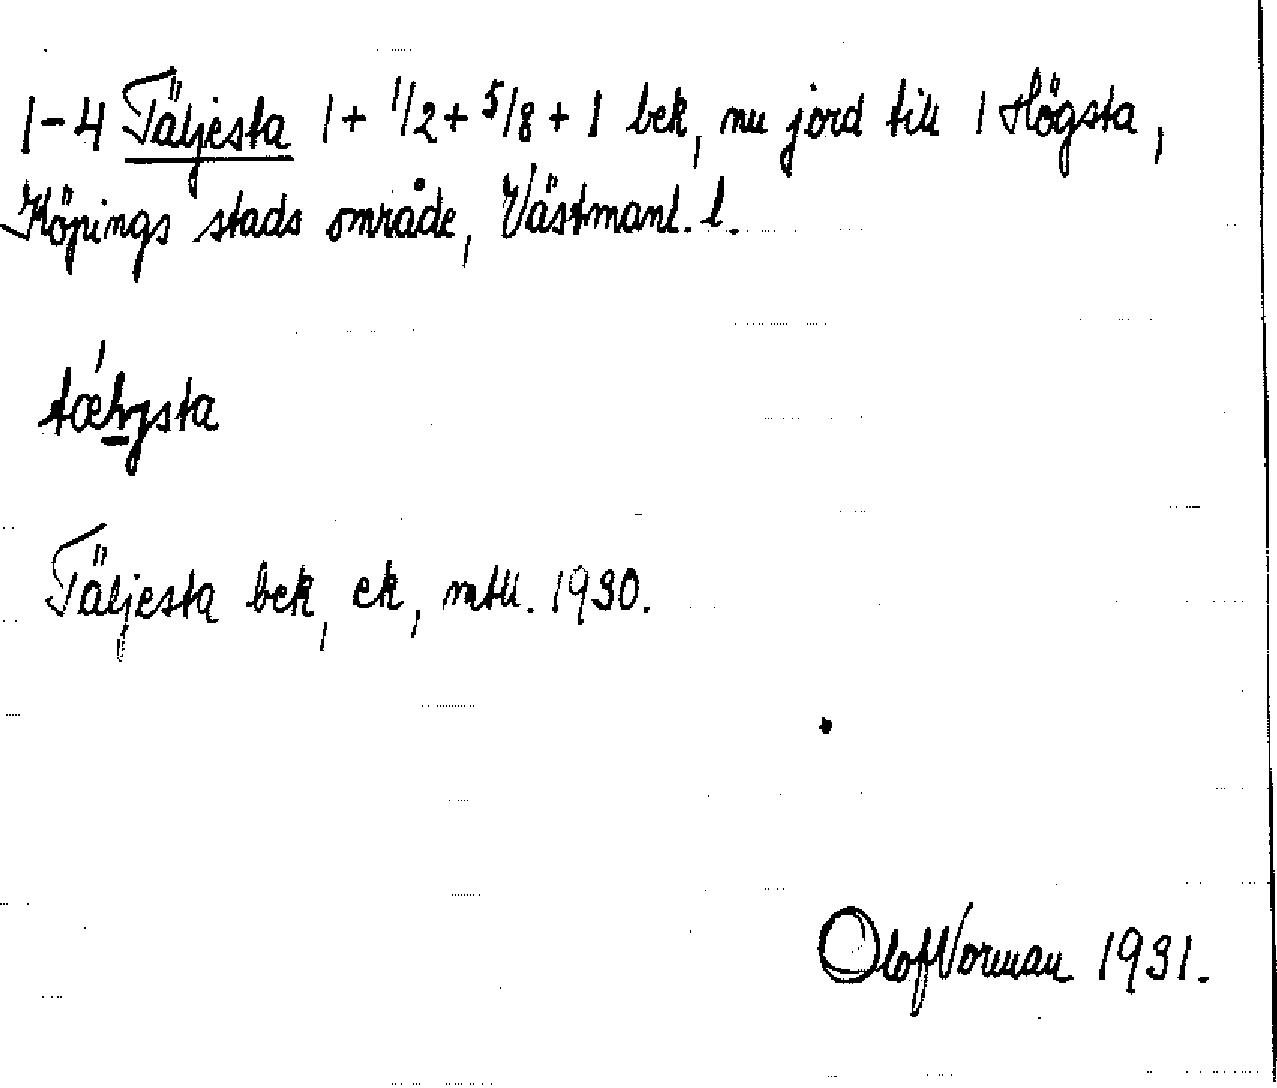 1-4 Täljesta 1 + 1/2 + 5/8 + 1 bek, nu jord till 1 Högsta,
Köpings stads område, Västmanl. l.
Täljesta bek, ek, mtl. 1930.
Olof Norman 1931.